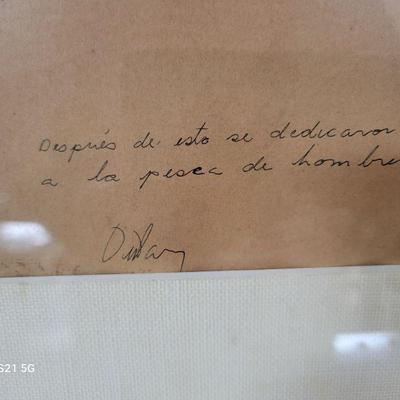 Después de esto se dedicaron
a la pesca de hombre
S21 5G